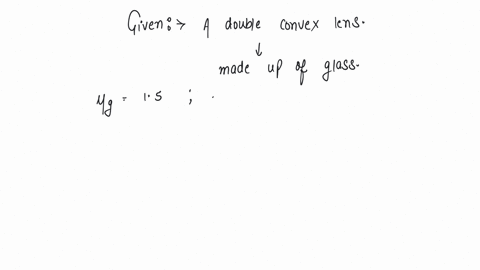 Given:→ A double convex lens.
↓
made up of glass.
μg = 1.5 ; .